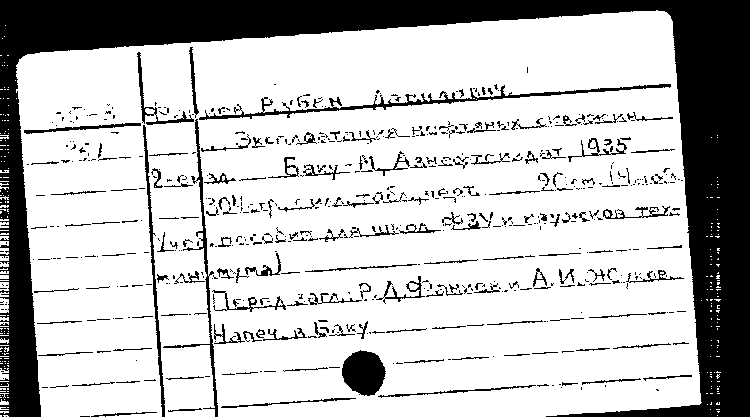 35-3 Фаниев, Рубен Давидович.
351 ... Эксплоатация нефтяных скважин.
2-е изд. Баку-М, Азнефтеиздат, 1935
304 стр. с илл., табл., черт. 20 см. (Н.
Учеб. пособия для школ ФЗУ и кружков тех-
минимума)
Перед загл.: Р.Д. Фаниев и А.И. Жуков.
Напеч. в Баку